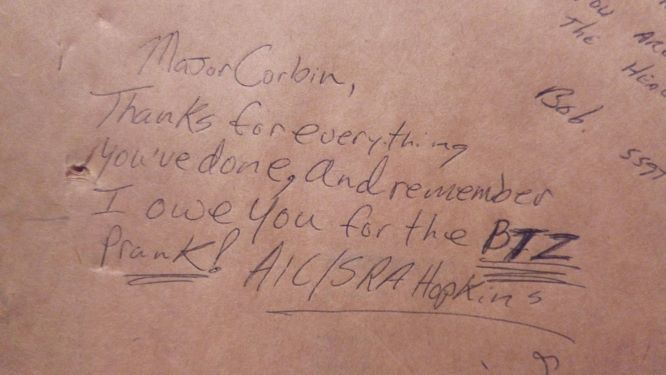 Major Corbin,
Thanks for everything
you've done, and remember
I owe you for the BTZ
Prank! A1C/SRA Hopkins
YOU ARE
The HEA
Bob.